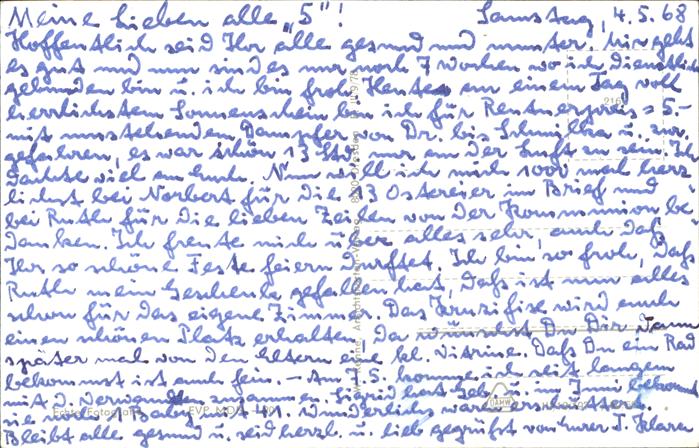 Meine lieben alle „5"! Samstag, 4.5.68
Hoffentlich seid Ihr alle gesund und munter, mir geht
es gut und nun sind es nur noch 7 Wochen wo ich dienstlich
gebunden bin u. ich bin froh. Heute an einem Tag voll
herrlichstem Sonnenschein bin ich für Rentnerpreis = 5.-
mit umstehendem Dampfer von Dr. bis Schmilka u. zur.
gefahren, es war schön 13 Std. nur an der Luft zu sein. Ich
dachte viel an Euch. Nun will ich mich 1000 mal herz
lichst bei Norbert für die 13 Ostereier im Brief und
bei Ruth für die lieben Zeilen von der Kommunion be.
danken. Ich freute mich über alles sehr, auch daß
Ihr so schöne Feste feiern durftet. Ich bin so froh, daß
Ruth mein Geschenk gefallen hat, daß ist nun alles
schon für das eigene Zimmer. Das Kruzifix wird auch
einen schönen Platz erhalten, da wünschst Du Dir dann
später mal von den Eltern eine kl. Vitrine. Daß Du ein Rad
bekommst ist auch fein. – Am 7.5. komme ich seit langen
mit d. Verwandten zusammen. Sigrid hat Geb. u. im Juni bekommt
sie noch 1 Baby
Bleibt alle gesund u. seid herzl. u. lieb gegrüßt von Eurer T. Klara
Echte Fotografie